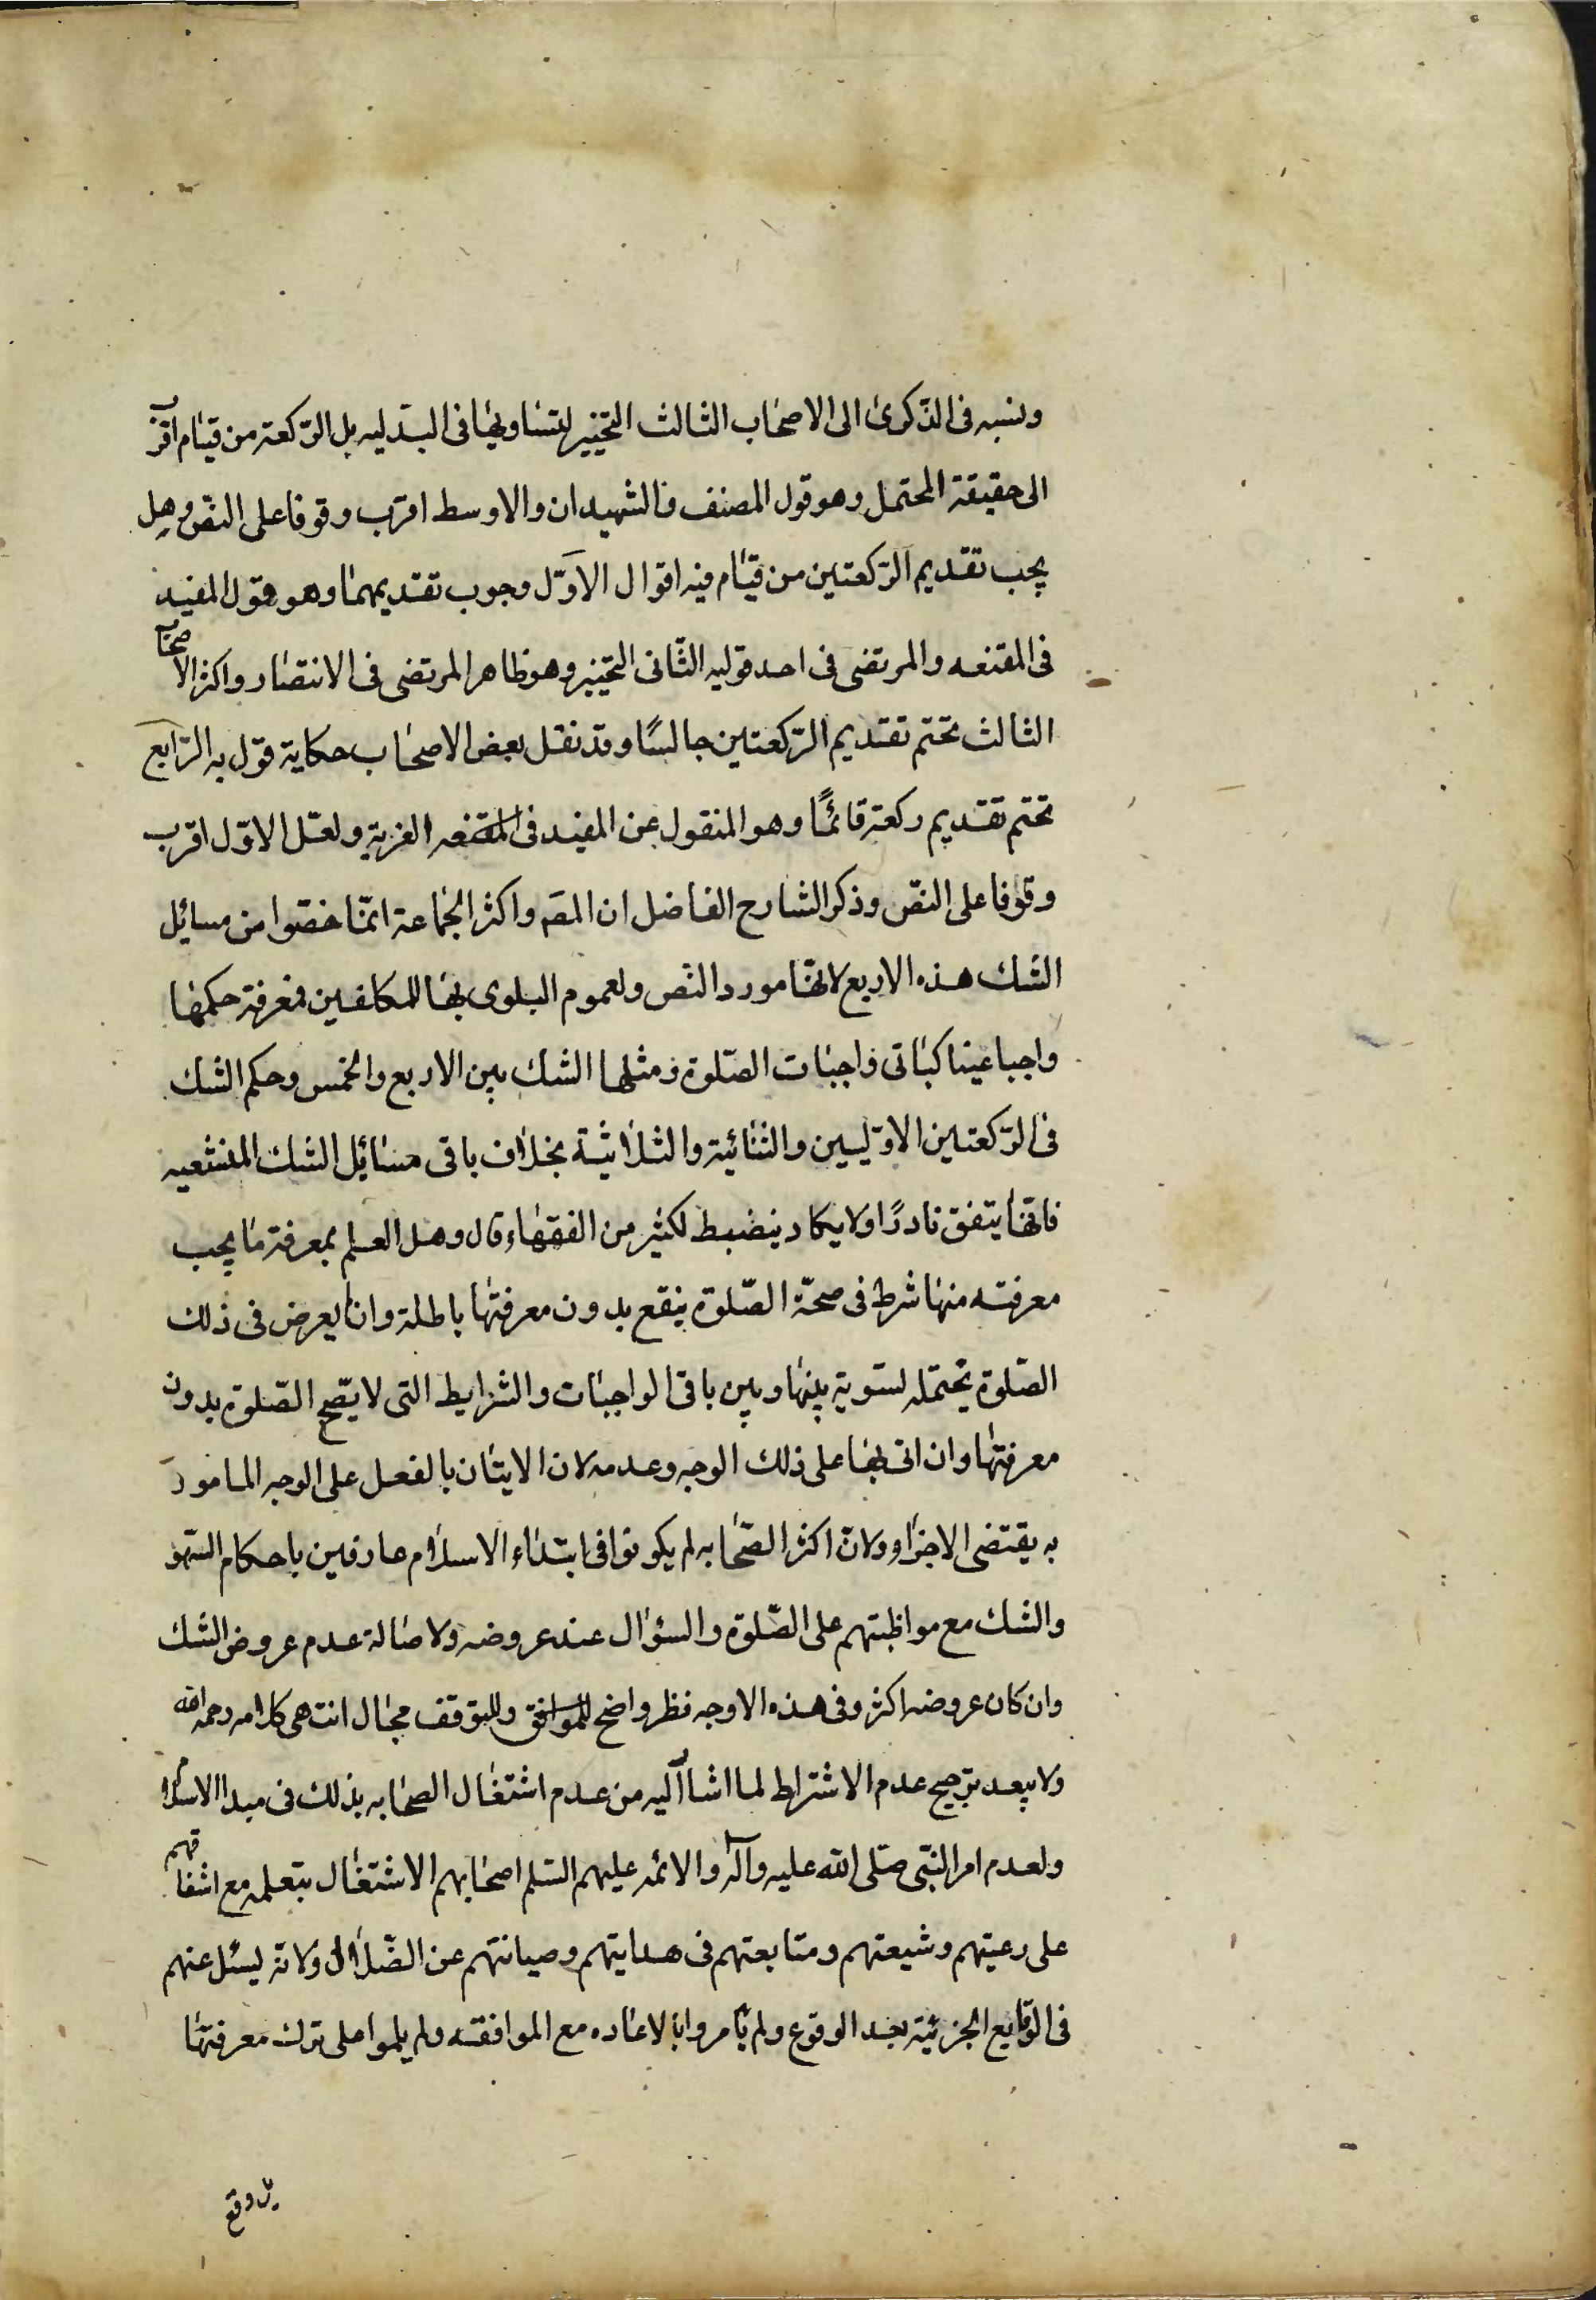 ونسبه فى الذكرى الى الاصحاب الثالث التخيير لتساويهما فى البدليه بل الركعة من قيام اقرب
الى حقيقة المحتمل وهو قول المصنف فالشهيدان والاوسط اقرب وقوفا على النص وهل
يجب تقديم الركعتين من قيام فيه اقوال الاول وجوب تقديمهما وهو قول المفيد
فى المقنعه والمرتضى فى احد قوليه الثانى التخيير وهو ظاهر المرتضى فى الانتصار واكثر الاصحاب
الثالث تحتم تقديم الركعتين جالسًا وقد نقل بعض الاصحاب حكاية قول به الرابع
تحتم تقديم ركعة قائمًا وهو المنقول عن المفيد فى المقنعه الغرية ولعل الاول اقرب
وقوفا على النص وذكر الشارح الفاضل ان المصَ واكثر الجماعة انما خصوا من مسائل
الشك هذه الاربع لانها مورد النص ولعموم البلوى بها للمكلفين فمعرفة حكمها
واجبا عينا كباقى واجبات الصلوة ومثلها الشك بين الاربع والخمس وحكم الشك
فى الركعتين الاوليين والثنائية والثلاثية بخلاف باقى مسائل الشك المنشعبه
فانها يتفق نادرًا ولا يكاد ينضبط لكثير من الفقهاء قال وهل العلم بمعرفة ما يجب
معرفته منها شرط فى صحة الصلوة ينقع بدون معرفتها باطلة وان لم يعرض فى ذلك
الصلوة يحتمله لتسوية بينها وبين باقى الواجبات والشرايط التى لا يصح الصلوة بدون
معرفتها وان اتى بها على ذلك الوجه وعدمه لان الايتان بالفعل على الوجه المامور
به يقتضى الاجزاء ولان اكثر الصحابه لم يكونوا فى ابتداء الاسلام عارفين باحكام السهو
والشك مع مواظبتهم على الصلوة والسؤال عند عروضه ولاصالة عدم عروض الشك
وان كان عروضه اكثر وفى هذه الاوجه نظر واضح للموافق وللتوقف مجال انتهى كلامه رحمه الله
ولا يبعد ترجيح عدم الاشتراط لما اشار اليه من عدم اشتغال الصحابه بذلك فى مبدا الاسلام
ولعدم امر النبى صلى الله عليه وآله والائمه عليهم السلم اصحابهم الاشتغال بتعلمه مع اشفاقهم
على رعيتهم وشيعتهم ومتابعتهم فى هدايتهم وصيانتهم عن الضلال ولانه ليسئل عنهم
فى الوقايع الجزئية بعد الوقوع ولم يامروا بالاعاده مع الموافقه ولم يلموا على ترك معرفتها
بل وقع